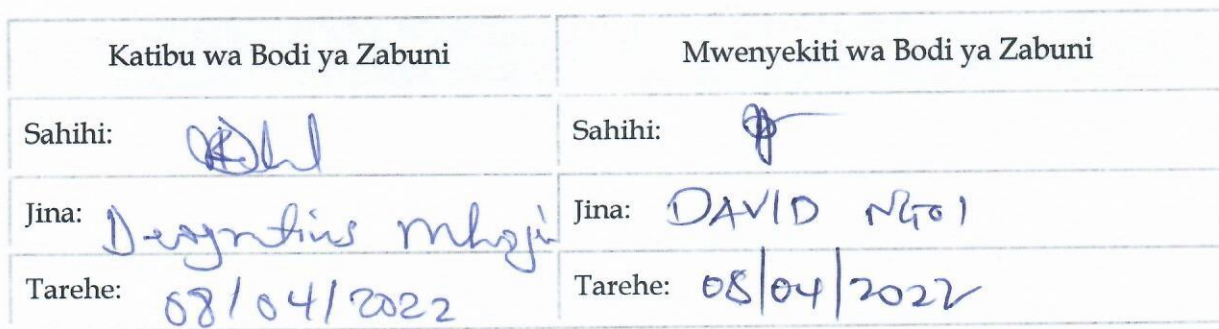 Katibu wa Bodi ya Zabuni Mwenyekiti wa Bodi ya Zabuni
Sahihi: Sahihi:
Jina: Jina: DAVID NGOI
Tarehe: 08/04/2022 Tarehe: 08/04/2022